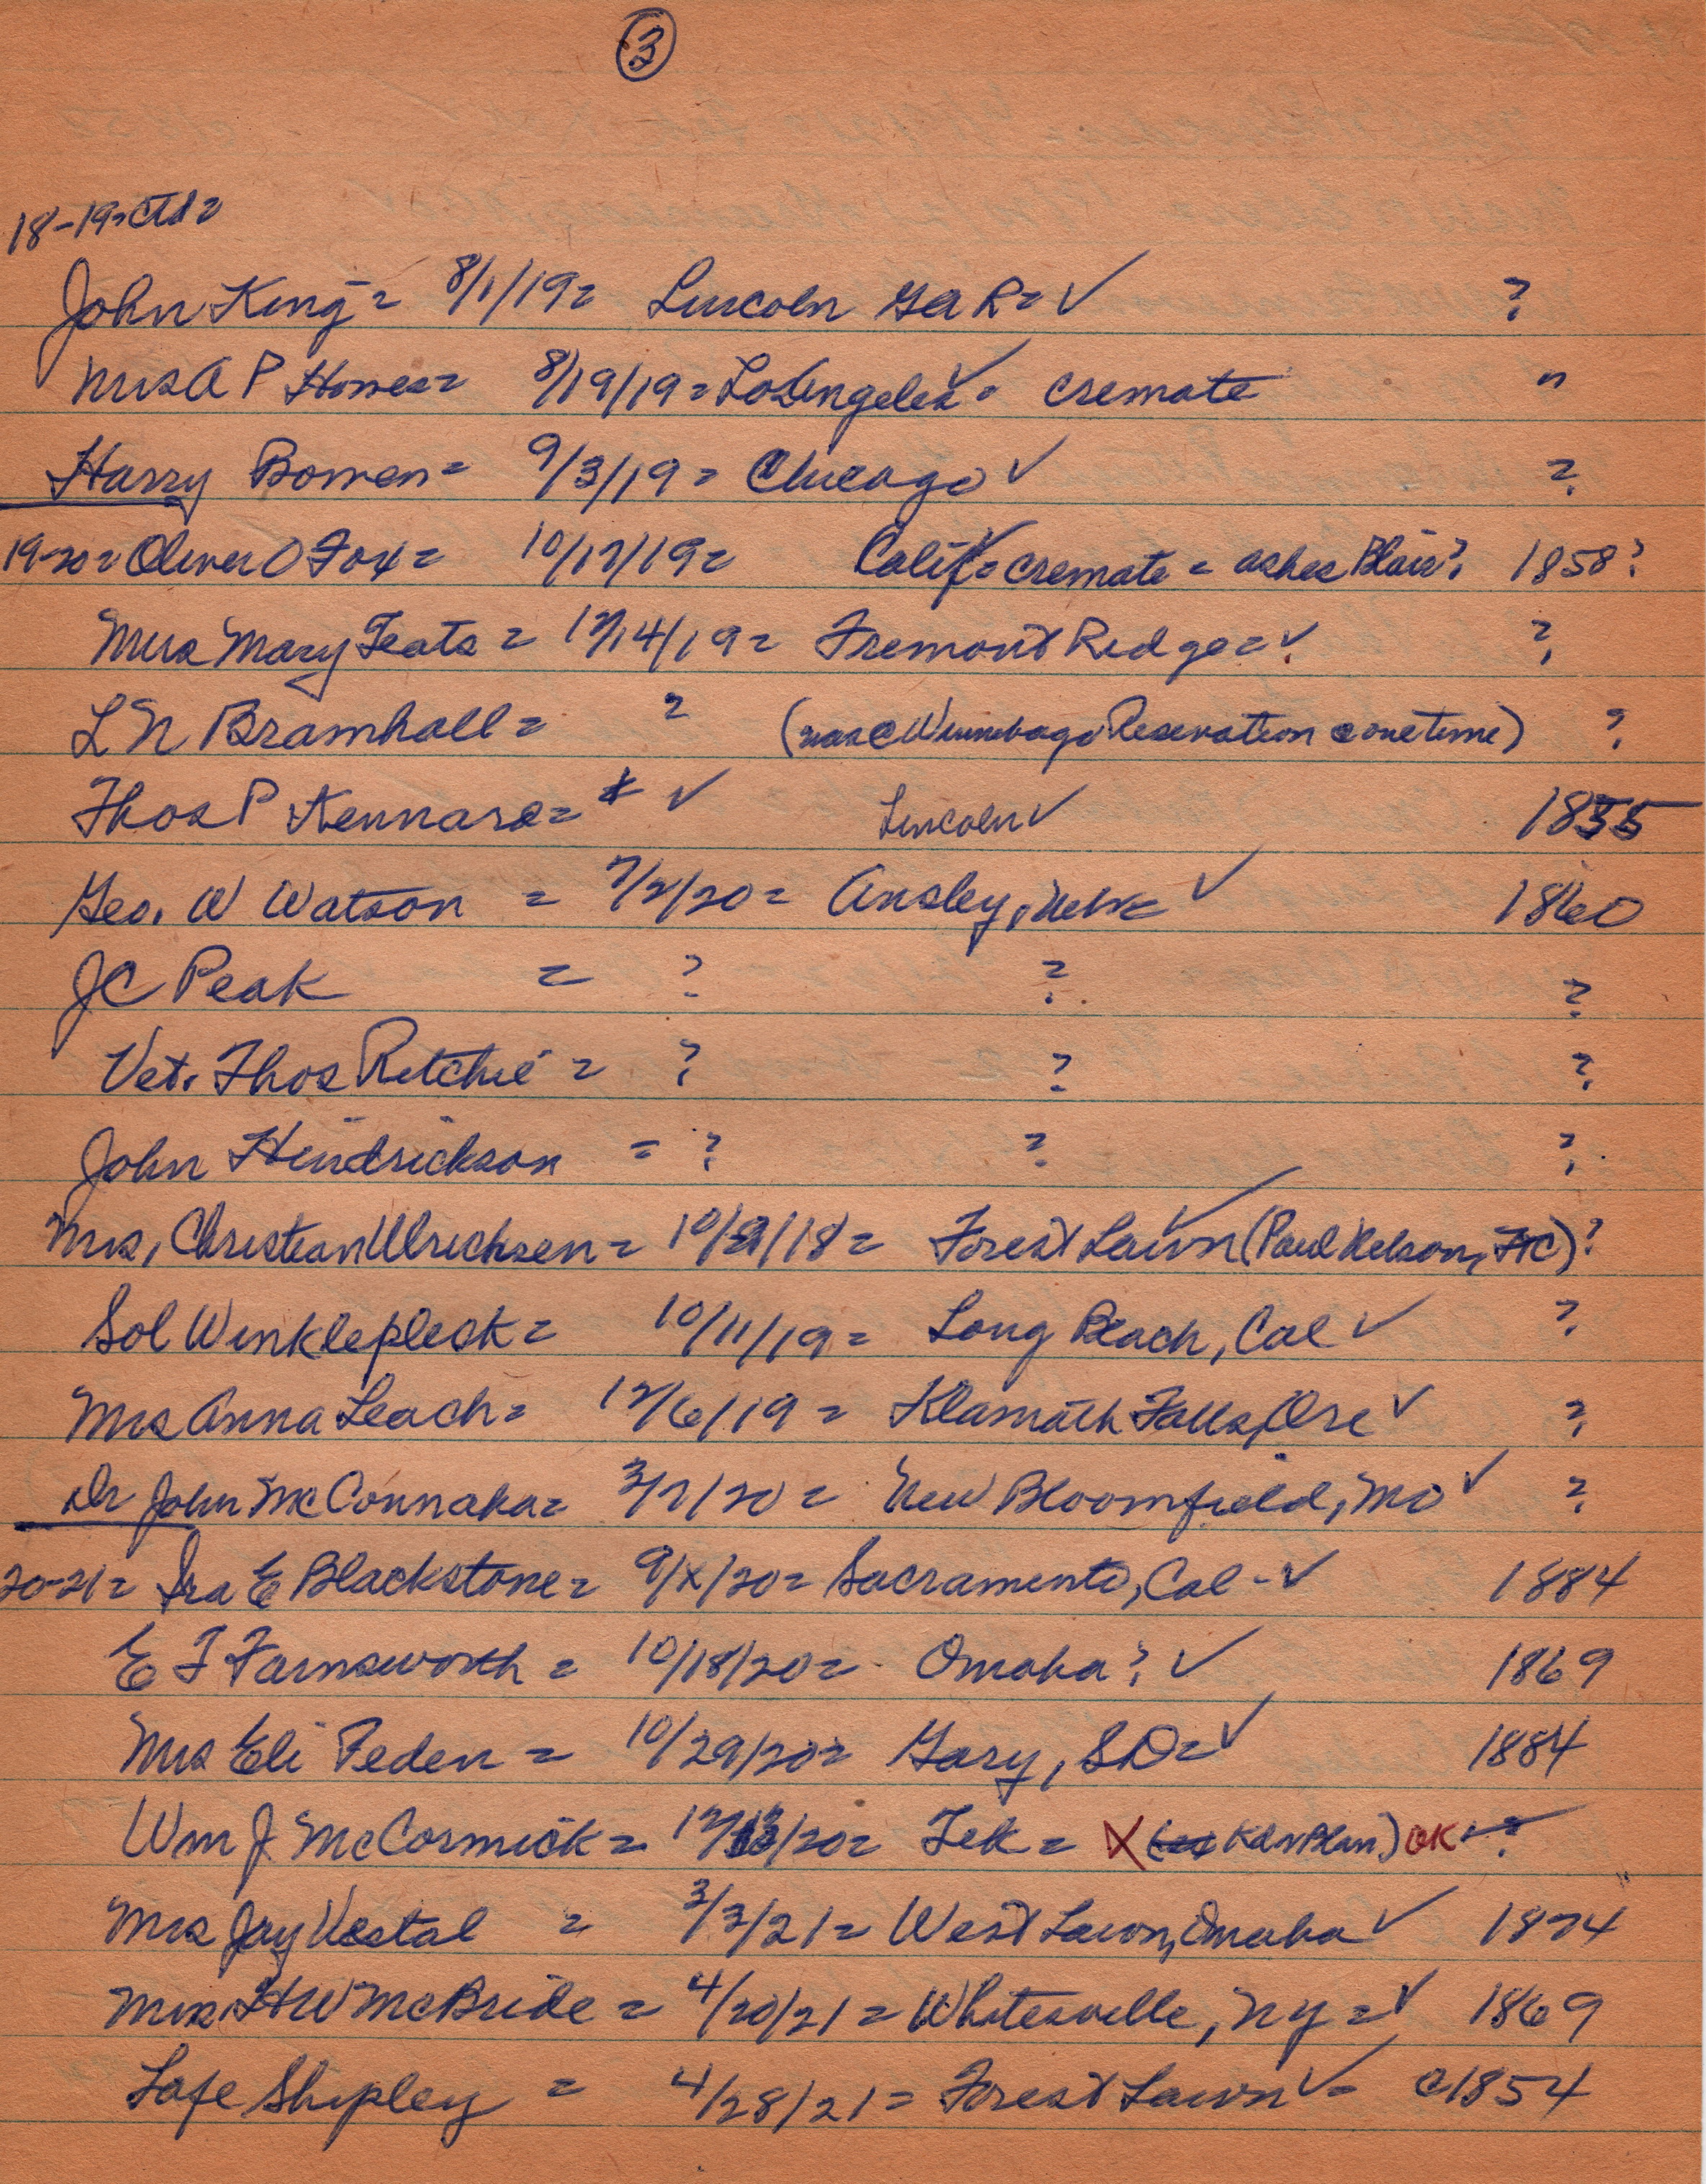 3
18-19 = ctd =
John King = 8/1/19 = Lincoln GAR = ✓ ?
Mrs A P Howes = 8/19/19 = Los Angeles ✓ = cremate "
Harry Bowen = 9/3/19 = Chicago ✓ ?
19-20 = Oliver O Fox = 10/17/19 = Calif ✓ = cremate = ashes Blair? 1858?
Mrs Mary Teats = 12/14/19 = Fremont Ridge = ✓ ?
L N Bramhall = ? (was @ Winnebago Reservation @ one time) ?
Thos P Kennard = * ✓ Lincoln ✓ 1855
Geo. W Watson = 7/2/20 = Ansley, Nebr ✓ 1860
JC Peak = ? ? ?
Vet. Thos Ritchie = ? ? ?
John Hendrickson = ? ? ?
Mrs, Christian Ulricksen = 10/ /18 = Forest Lawn ✓ (Paul Nelson, ) ?
Sol Winklepleck = 10/11/19 = Long Beach, Cal ✓ ?
Mrs Anna Leach = 12/6/19 = Klamath Falls, Ore ✓ ?
Dr John McConnaha = 3/7/20 = New Bloomfield, Mo ✓ ?
20-21 = Ira E Blackstone = 9/x/20 = Sacramento, Cal - ✓ 1884
E F Farnsworth = 10/18/20 = Omaha? ✓ 1869
Mrs Eli Peden = 10/29/20 = Gary, SD = ✓ 1884
Wm J. McCormick = 12/13/20 = Tek = X ( ) OK ✓ ?
Mrs Jay Vestal = 3/3/21 = West Lawn, Omaha ✓ 1874
Mrs. HW McBride = 4/20/21 = Whitesville, NY = ✓ 1869
Lafe Shipley = 4/28/21 = Forest Lawn ✓ = c1854